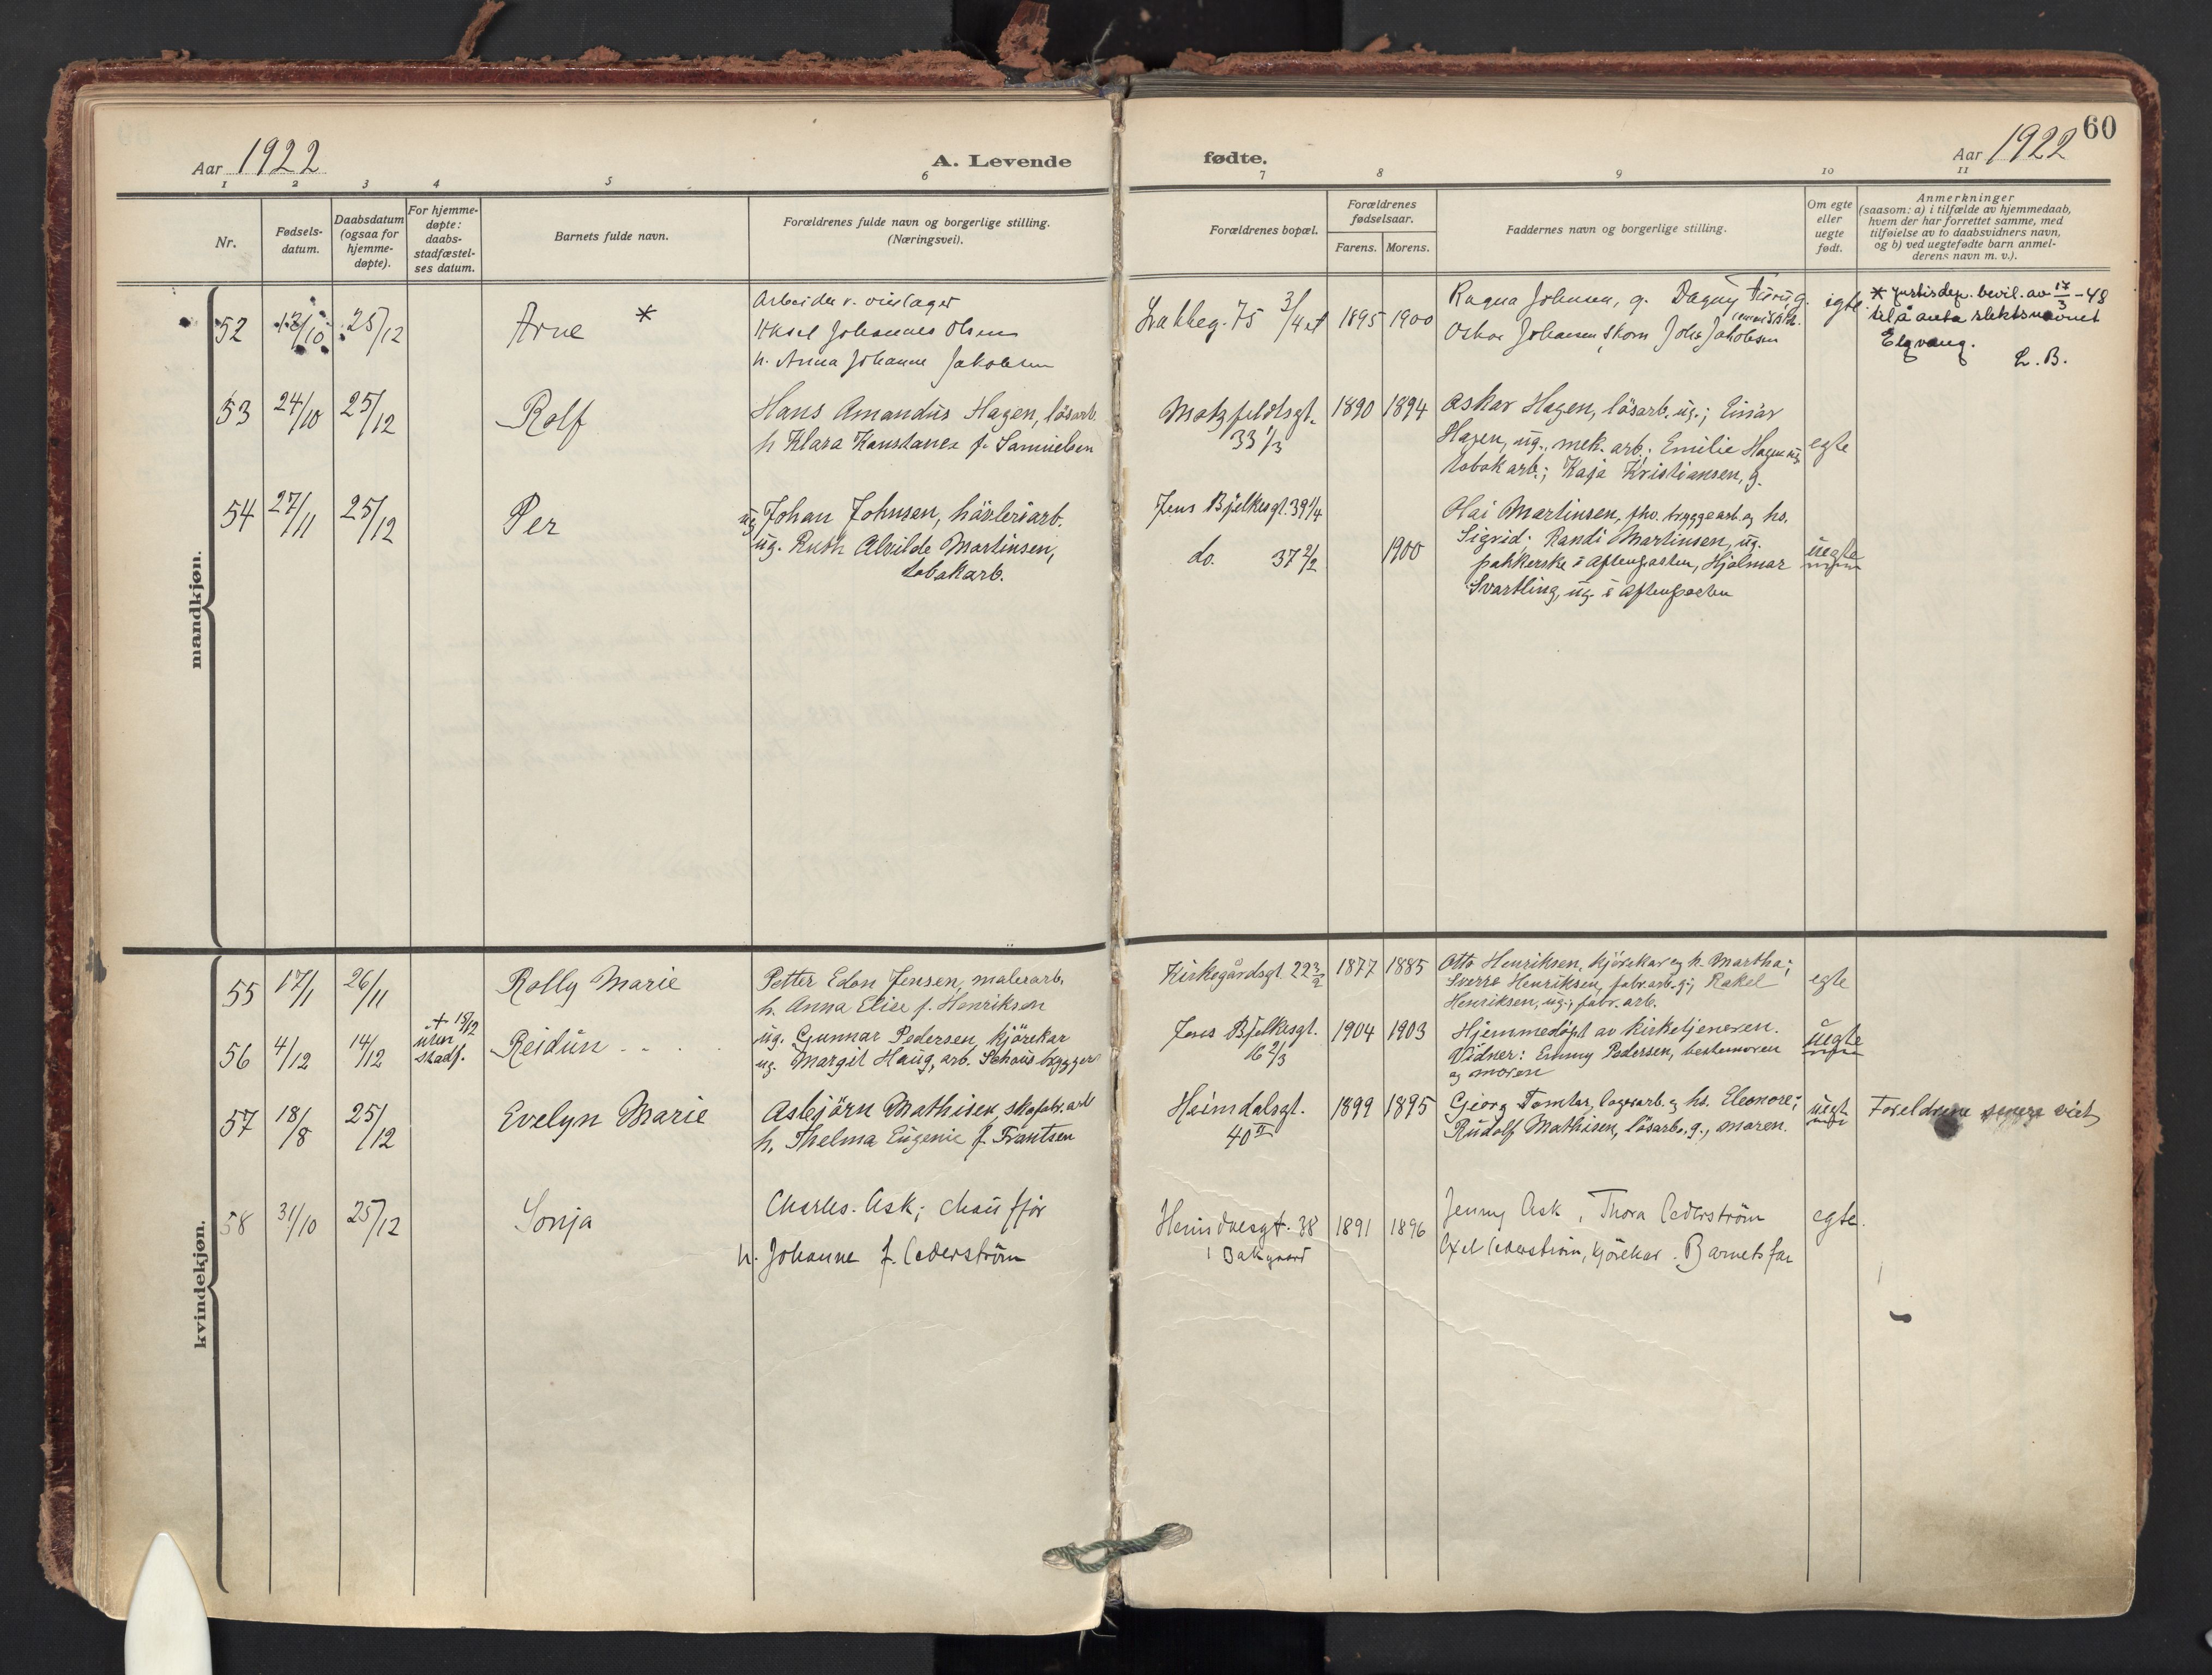 Aar 1922
A. Levende
fødte.
Aar 1922
60
1 2 3 4 5 6 7 8 9 10 11
Nr.
Fødsels-
datum.
Daabsdatum
(ogsaa for
hjemme-
døpte).
For hjemme-
døpte:
daabs-
stadfæstel-
ses datum.
Barnets fulde navn.
Forældrenes fulde navn og borgerlige stilling.
(Næringsvei).
Forældrenes bopæl.
Forældrenes
fødselsaar.
Farens. Morens.
Faddernes navn og borgerlige stilling.
Om egte
eller
uegte
født.
Anmerkninger
(saasom: a) i tilfælde av hjemmedaab,
hvem der har forrettet samme, med
tilføielse av to daabsvidners navn,
og b) ved uegtefødte barn anmel-
derens navn m. v.).
mandkjøn.
52 13/10 25/12
Arne *
Arbeider v.
Aksel Johannes Olsen
h. Anna Johanne Jakobsen
75 3/4
1895 1900
Ragna Johnsen, g. Dagny
Oskar Johansen, skom John Jakobsen
egte
* Justisdep. bevil. av 17/3 - 48
til å anta slektsnavnet
Elgvang.
L. B.
53 24/10 25/12
Rolf
Hans Amandus Hagen, lösarb.
h Klara Konstanse f. Samuelsen
Motzfeldtsgt.
33 1/3
1890 1894
Oskar Hagen, lösarb. ug.; Einar
Hagen, ug., mek. arb.; Emilie Hagen ug.
tobakarb.; Kaja Kristiansen, g.
egte
54 27/11 25/12
Per
ug Johan Johnsen, hövleriarb.
ug. Ruth Alvilde Martinsen,
tobakarb.
Jens Bjelkesgt. 39 1/4
do. 37 2/2
1900
Martinsen, fhv. bryggearb. og hs.
Sigrid; Randi Martinsen, ug.
pakkerske i Aftenposten, Hjalmar
Svartling, ug. i Aftenposten
uegte
kvindekjøn.
55 17/1 26/11
Rolly Marie
Petter Edon Jensen, malerarb.
h. Anna Elise f. Henriksen
Kirkegårdsgt. 22 3/2
1877 1885
Otto Henriksen, kjörekar og h. Martha;
Sverre Henriksen, fabr.arb. g.; Rakel
Henriksen, ug., fabr. arb.
egte
56 4/12 14/12
+ 18/12
uten
stadf.
Reidun
ug. Gunnar Pedersen, kjörekar
ug. Margit Haug, arb. Schous bryggeri
Jens Bjelkesgt.
16 2/3
1904 1903
Hjemmedöpt av kirketjeneren.
Vidner: Emmy Pedersen, bestemoren
og moren
uegte
57 18/8 25/12
Evelyn Marie
Asbjörn Mathisen, skofabr.arb
h. Thelma Eugenie f. Frantsen
Heimdalsgt.
40 II
1899 1895
Georg Tomter, lagerarb. og hs. Eleonore;
Rudolf Mathisen, lösarb. g., moren.
uegte
Foreldrene senere viet
58 31/10 25/12
Sonja
Charles Ask; chauffför
h. Johanne f. Cederström
Heimdalsgt. 38
i Bakgaard
1891 1896
Jenny Ask, Thora Cederström
Axel Cederström, kjörekar. Barnets far
egte.